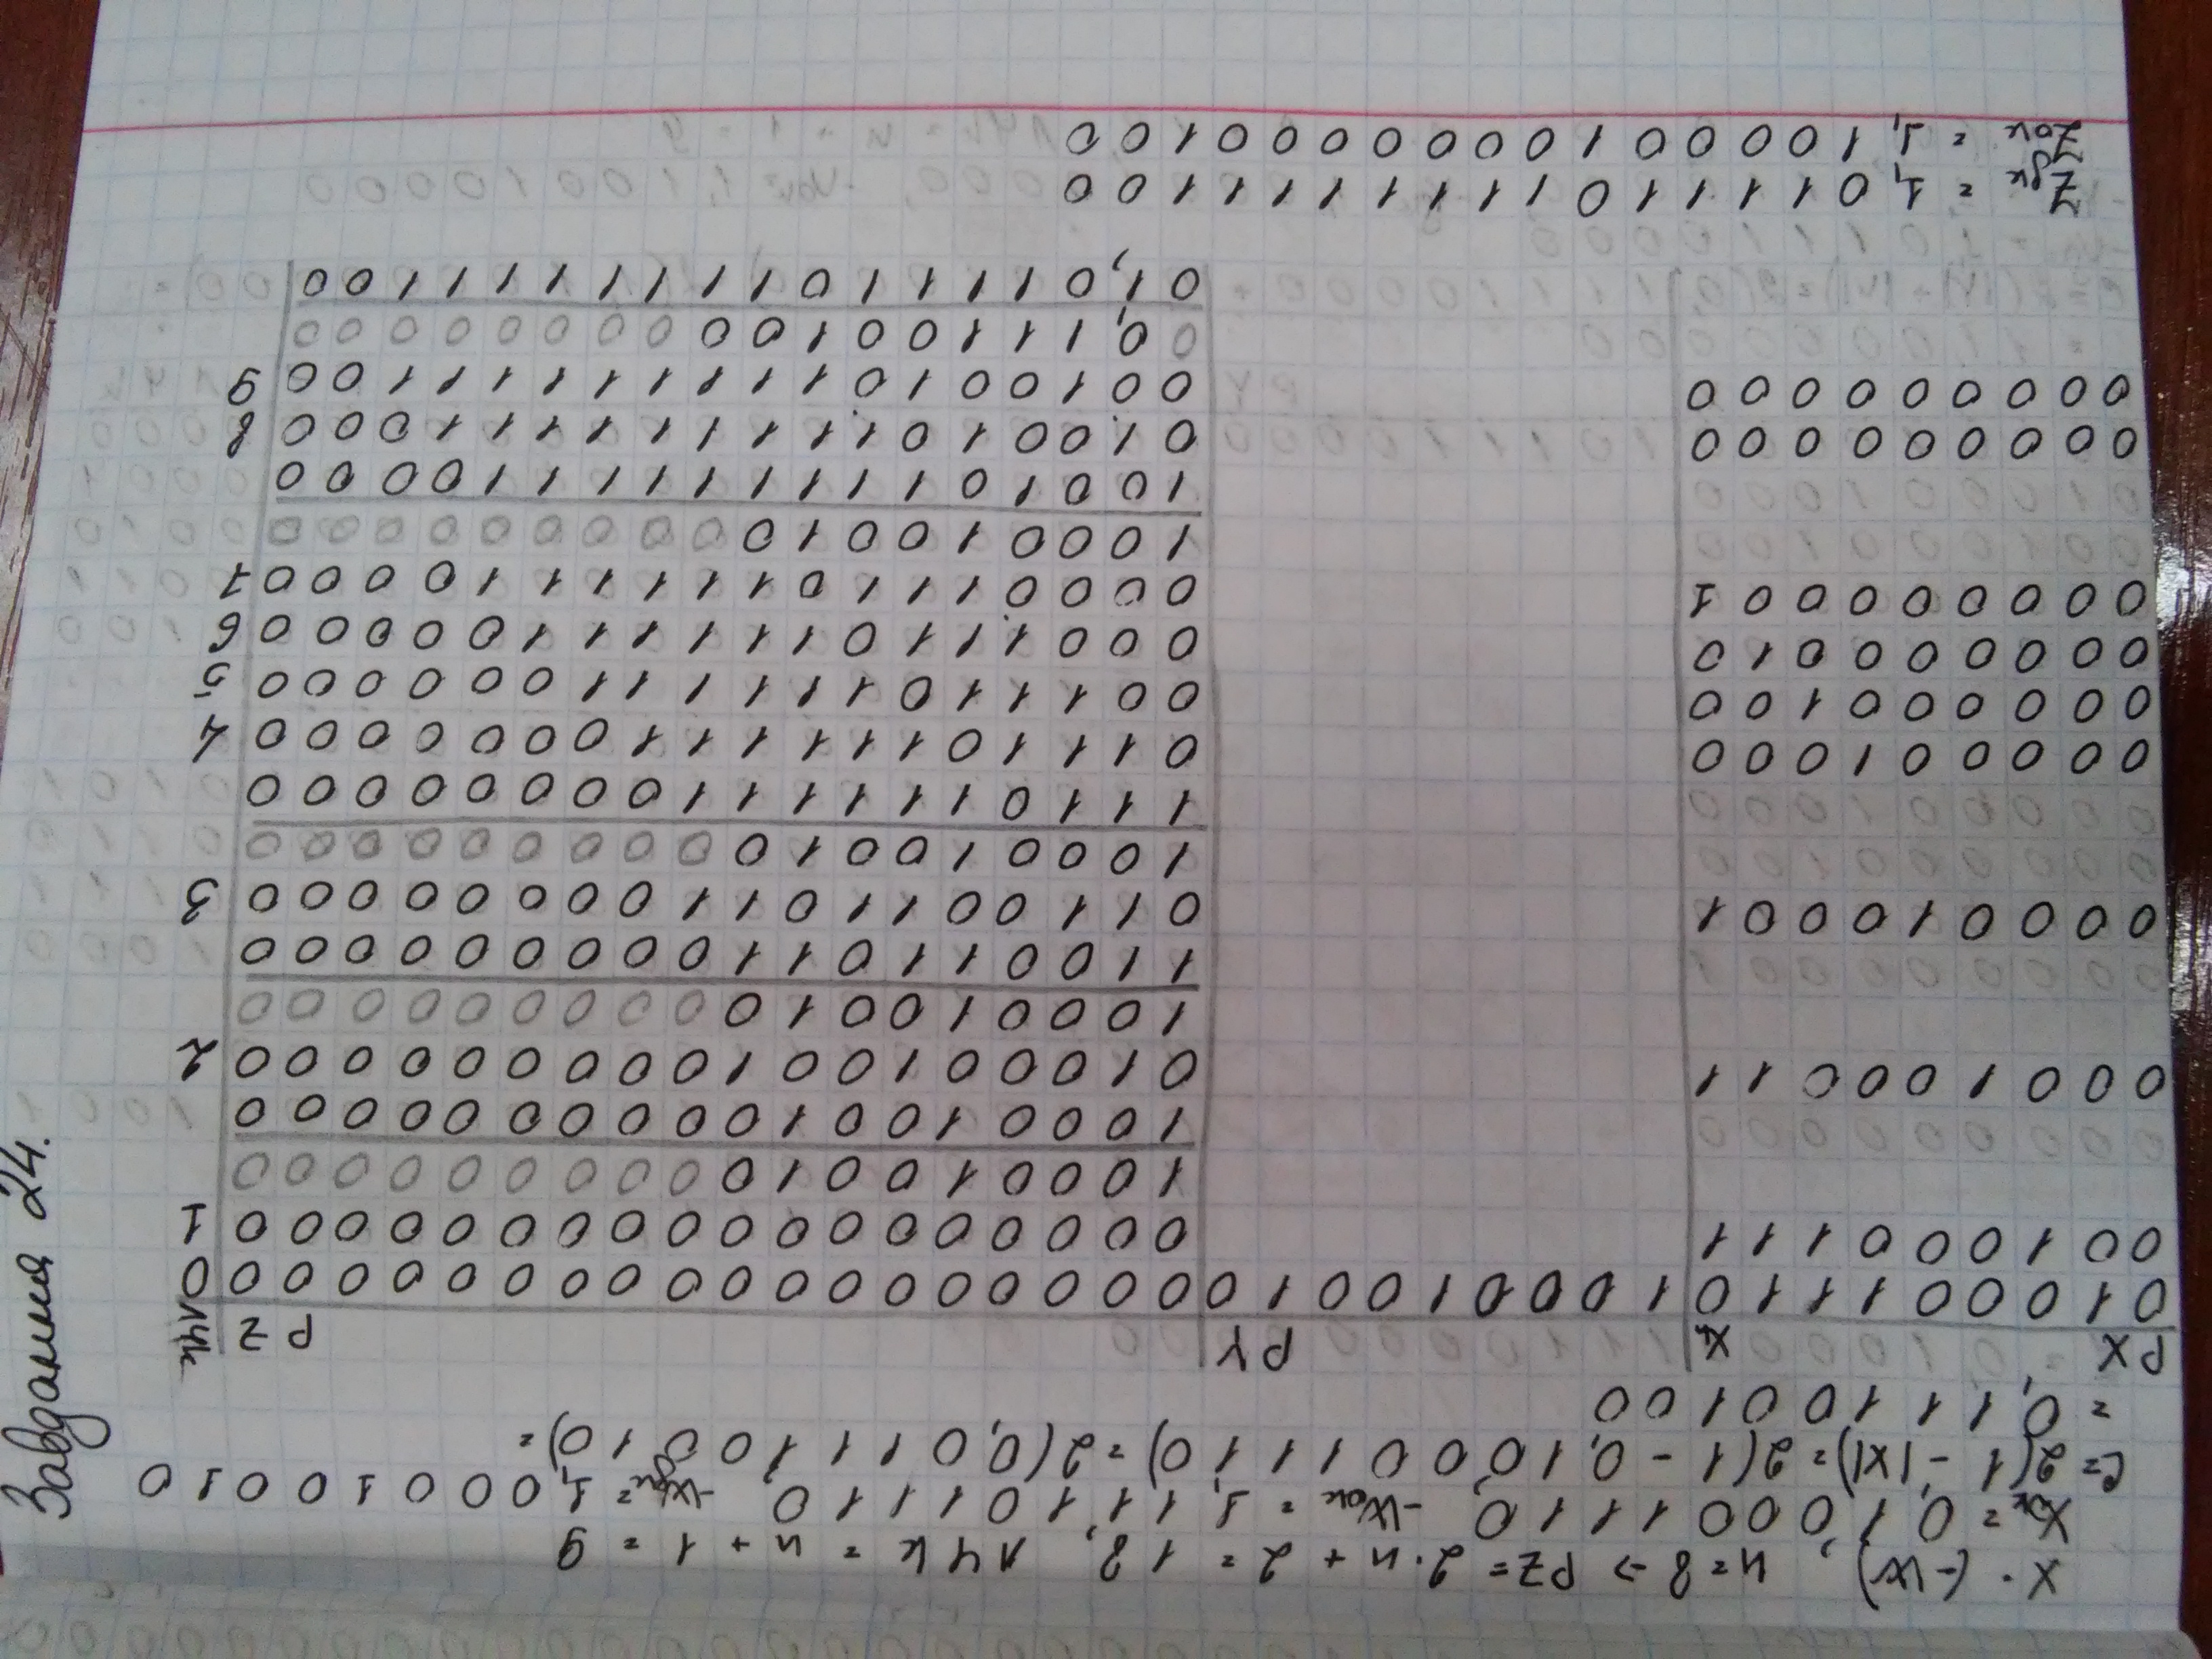 Завдання 24.
X · (-W), n = 8 -> PZ = 2 · n + 2 = 18, ЛЧк = n + 1 = 9
Xок = 0,10001110, -Wок = 1,11101110, -Wдк = 1,00010010
C = 2(1 - |X|) = 2(1 - 0,10001110) = 2(0,01110010) =
= 0,11100100
PX Xn PY PZ ЛЧк
010001110 100010010 000000000000000000 0
001000111 000000000000000000 1
100010010000000000
100010010000000000
000100011 010001001000000000 2
100010010000000000
110011011000000000
000010001 011001101100000000 3
100010010000000000
111011111100000000
000001000 011101111110000000 4
000000100 001110111111000000 5
000000010 000111011111100000 6
000000001 000011101111110000 7
100010010000000000
100101111111110000
000000000 010010111111111000 8
000000000 001001011111111100 9
00,1110010000000000
01,0111101111111100
Zдк = 1,0111101111111100
Zок = 1,1000010000000100